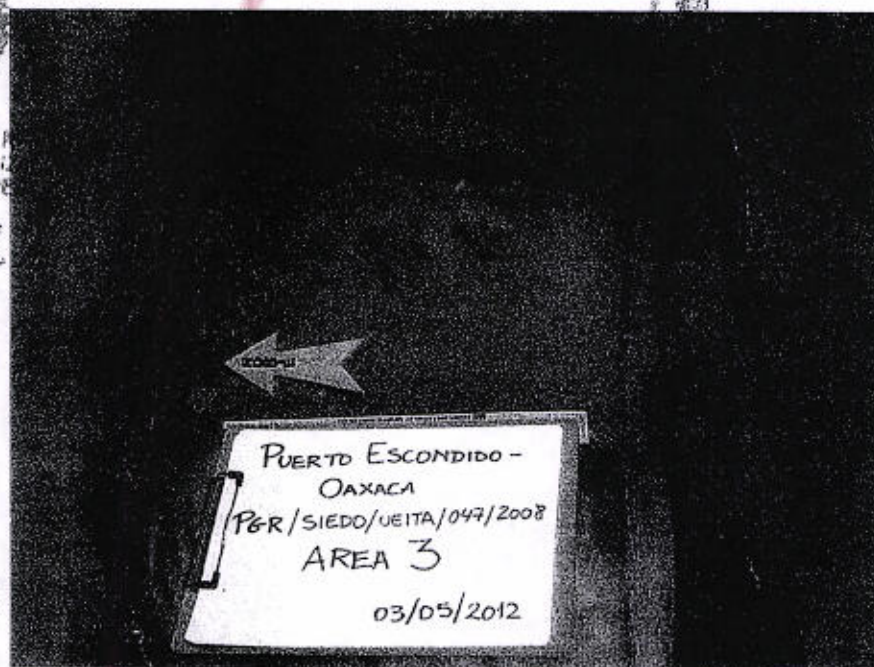 PUERTO ESCONDIDO -
OAXACA
PGR/SIEDO/UEITA/047/2008
AREA 3
03/05/2012